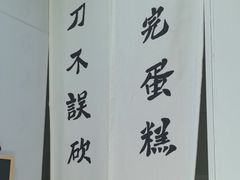 完蛋糕
刀不誤砍